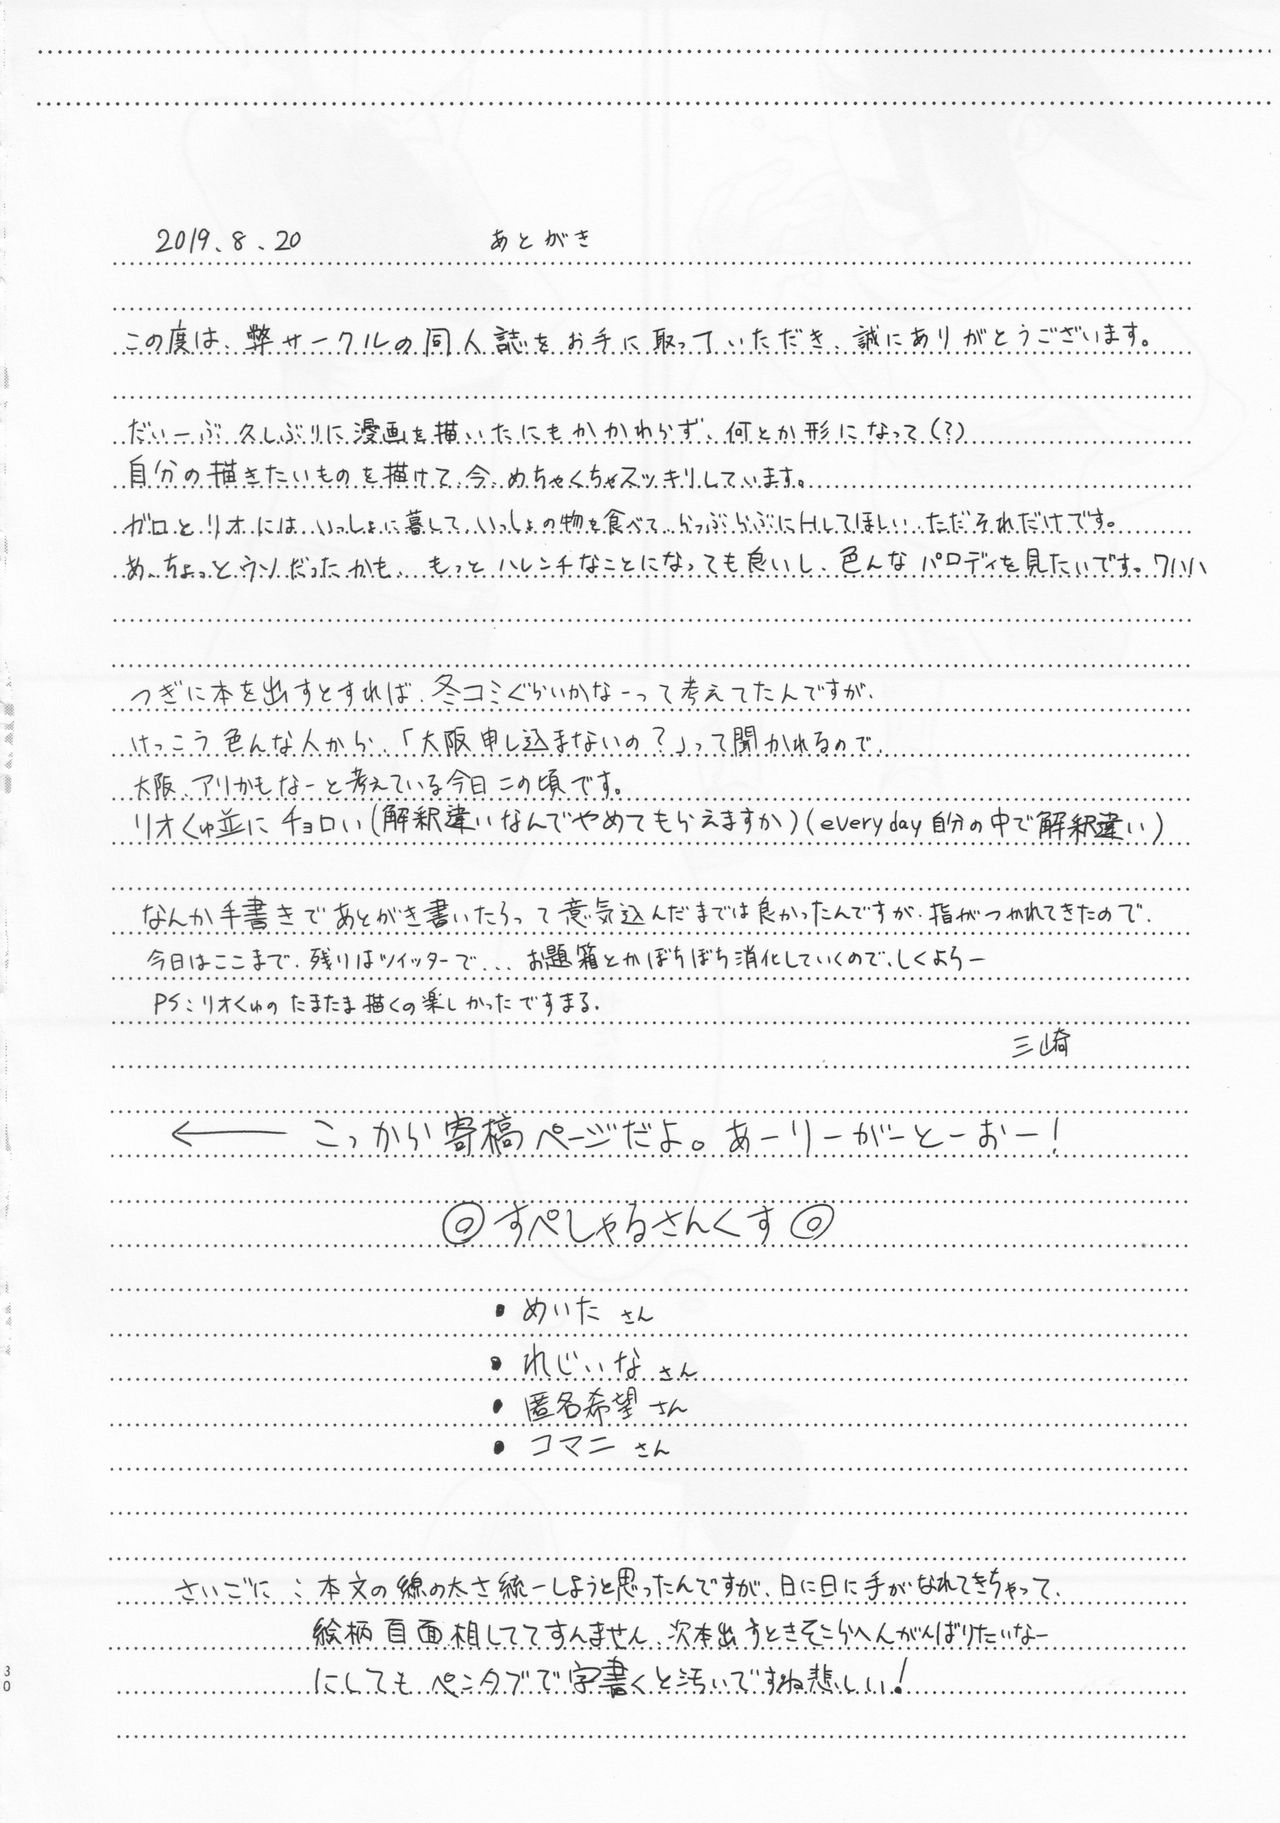 2019.8.20 あとがき
この度は、弊サークルの同人誌をお手に取っていただき、誠にありがとうございます。
だいーぶ久しぶりに漫画を描いたにもかかわらず、何とか形になって(?)
自分の描きたいものを描けて、今、めちゃくちゃスッキリしています。
ガロとリオには、いっしょに暮して、いっしょの物を食べて、らっぶらぶにHしてほしい、ただそれだけです。
あ、ちょっとウソだったかも、もっとハレンチなことになっても良いし、色んなパロディを見たいです。ワハハ
つぎに本を出すとすれば、冬コミぐらいかなーって考えてたんですが、
けっこう色んな人から、「大阪申し込まないの?」って聞かれるので、
大阪、アリかもなーと考えている今日この頃です。
リオくゅ並にチョロい(解釈違いなんでやめてもらえますか)(everyday自分の中で解釈違い)
なんか手書きであとがき書いたろって意気込んだまでは良かったんですが、指がつかれてきたので、
今日はここまで、残りはツイッターで... お題箱とかぼちぼち消化していくので、しくよろー
PS:リオくゅのたまたま描くの楽しかったですまる.
三崎
← こっから寄稿ページだよ。あーりーがーとーおー!
◎すぺしゃるさんくす◎
• めいたさん
• れじぃなさん
• 匿名希望さん
• コマニさん
さいごに:本文の線の太さ統一しようと思ったんですが、日に日に手がなれてきちゃって、
絵柄百面相しててすんません、次本出すときそこらへんがんばりたいなー
にしてもペンタブで字書くと汚いですね悲しい!
30